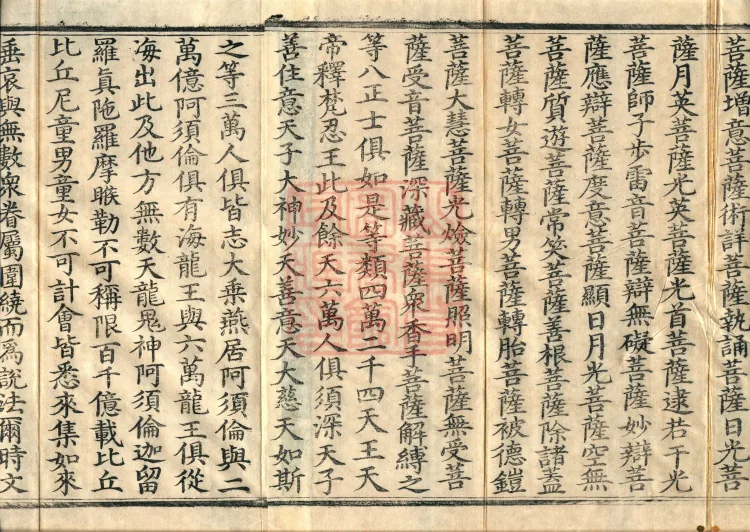 菩薩增意菩薩術詳菩薩執誦菩薩日光菩
薩月英菩薩光英菩薩光首菩薩逮若干光
菩薩師子步雷音菩薩辯無礙菩薩妙辯菩
薩應辯菩薩度意菩薩顯日月光菩薩空無
菩薩質遊菩薩常笑菩薩善根菩薩除諸蓋
菩薩轉女菩薩轉男菩薩轉胎菩薩被德鎧
菩薩大慧菩薩光燄菩薩照明菩薩無受菩
薩受音菩薩深藏菩薩衆香手菩薩解縛之
等八正士俱如是等類四萬二千四天王天
帝釋梵忍王此及餘天六萬人俱須深天子
善住意天子大神妙天善意天大慈天如斯
之等三萬人俱皆志大乘燕居阿須倫與二
萬億阿須倫俱有海龍王與六萬龍王俱從
海出此及他方無數天龍鬼神阿須倫迦留
羅眞陁羅摩睺勒不可稱限百千億載比丘
比丘尼童男童女不可計會皆悉來集如來
垂哀與無數衆眷屬圍繞而爲說法爾時文